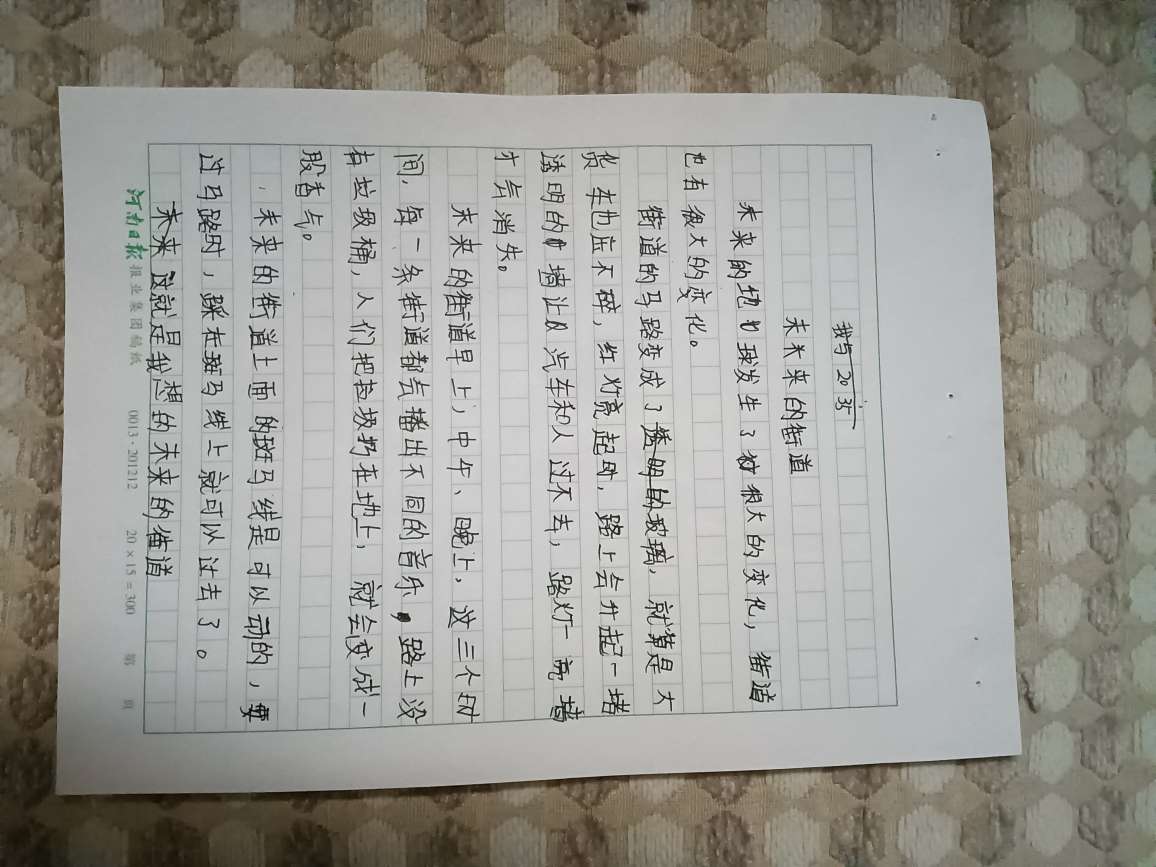 我与2035
未来的街道
未来的地球发生了很大的变化，街道
也有很大的变化。
街道的马路变成了透明的玻璃，就算是大
货车也压不碎，红灯亮起时，路上会升起一堵
透明的墙让汽车和人过不去，路灯一亮墙
才会消失。
未来的街道早上，中午、晚上，这三个时
间，每一条街道都会播出不同的音乐，路上没
有垃圾桶，人们把垃圾扔在地上，就会变成一
股香气。
未来的街道上面的斑马线是可以动的，要
过马路时，踩在斑马线上就可以过去了。
这就是我想的未来的街道
河南日报报业集团稿纸 0013·201212 20×15=300 第 页